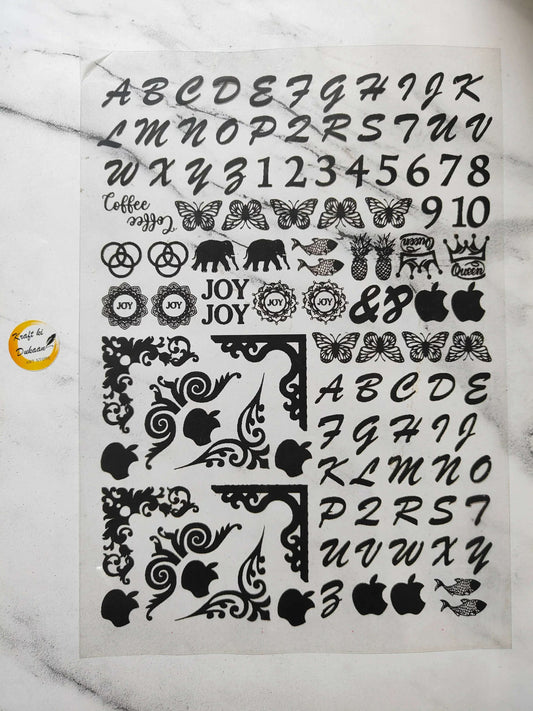 A B C D E F G H I J K
L M N O P Q R S T U V
W X Y Z 1 2 3 4 5 6 7 8
Coffee
Coffee
9 10
Queen
Queen
JOY
JOY
JOY
JOY
JOY
JOY
&
&
Kraft ki
Dukaan
A B C D E
F G H I J
K L M N O
P Q R S T
U V W X Y
Z